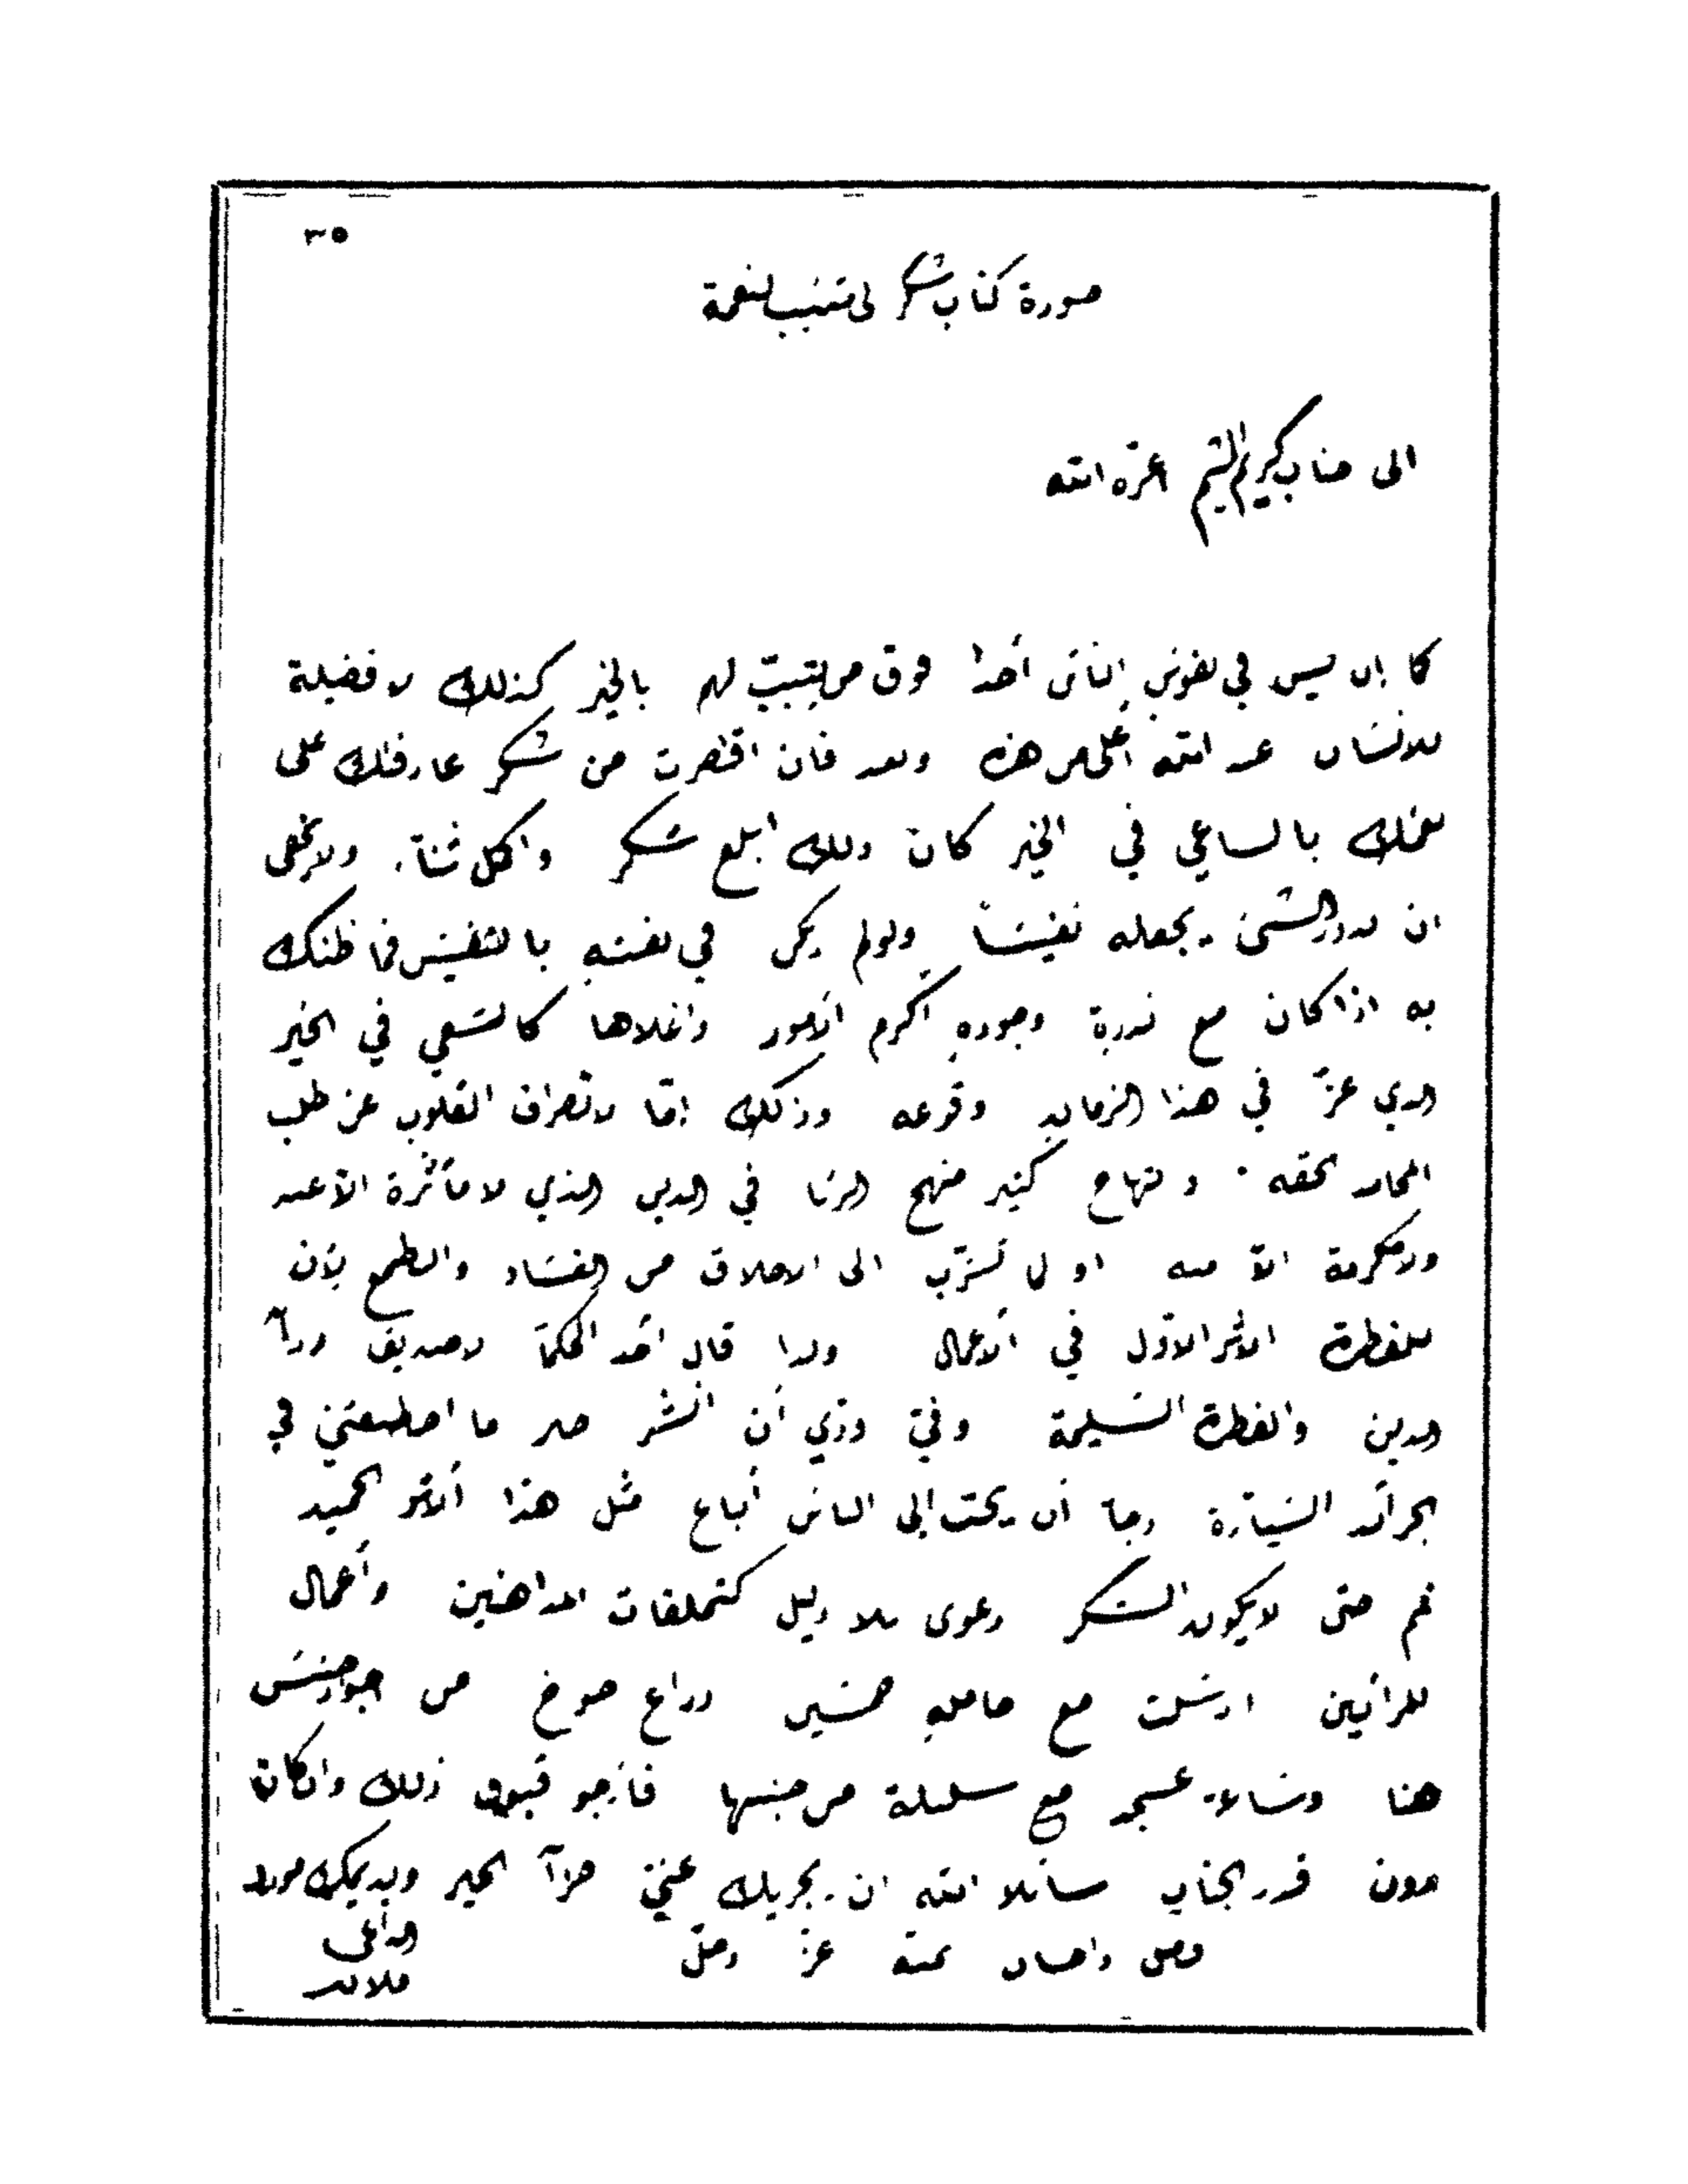 ٣٥
صورة كتاب شكر لمتسبب لنعمة
الى جناب كريم الشيم اعزه الله
كما ان ليس في نفوس الناس أحدا فوق من يتسبب لهم بالخير كذلك لا فضيلة
للانسان عند الله أعلى من هذه وبعد فان اقتصرت من شكر عارفتك على
نعتك بالساعي في الخير كان ذلك ابلغ شكر واكمل ثناء ولا يخفى
ان ندور الشئ يجعله نفيسا ولو لم يكن في نفسه بالنفيس فما ظنك
به اذا كان مع ندرة وجوده اكرم الامور واغلاها كالسعي في الخير
الذي عز في هذا الزمان وقوعه وذلك اما لانصراف القلوب عن طلب
المحامد بحقه وانتهاج كثير منهج الريا في الدين الذي لا مأثرة الا عنده
ولا مكرمة الا منه او لما تسرب الى الاخلاق من الفساد والطمع بأن
للفطرة الاثر الاول في الاعمال ولذا قال احد الحكماء لا صديق وراء
الدين والفطرة السليمة وفي ودي أن انشر خبر ما اصطنعتني في
الجرائد السيارة رجاء أن يحبب الى الناس أتباع مثل هذا الاثر الحميد
ثم حتى لا يكون الشكر دعوى بلا دليل كتملقات المداهنين وأعمال
المرائين ارسلت مع حامله خمسين ذراع جوخ من اجود جنس
هنا وساعة عسجد مع سلسلة من جنسها فأرجو قبول ذلك وان كان
دون قدر الجناب سائلا الله ان يجزيك عني جزاء الخير ويديمك مورد
فضل واحسان بمنه عز وجل
الداعي
فلان